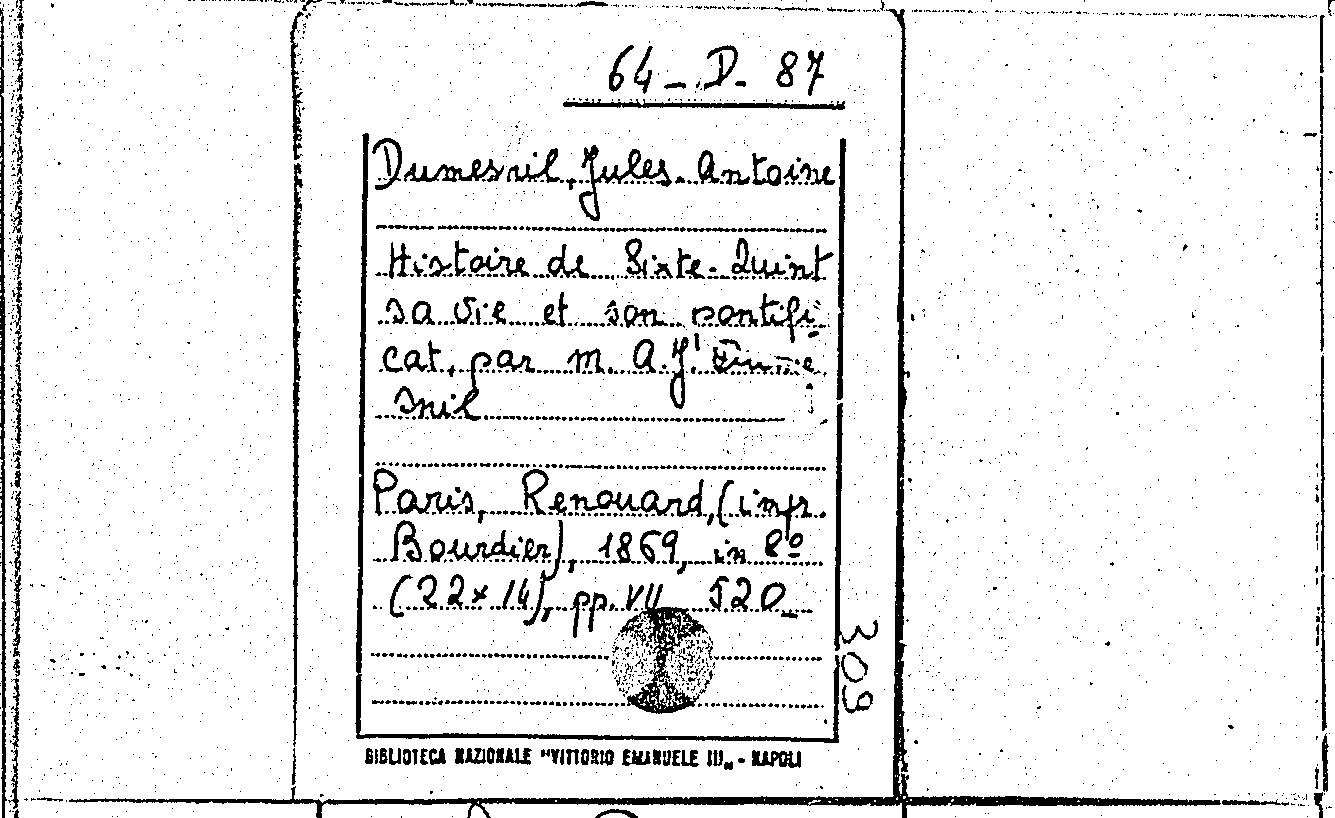 64-D-87
Dumesnil, Jules-Antoine
Histoire de Sixte-Quint
sa vie et son pontifi
cat, par m. A.J. Dume
snil
Paris, Renouard, (impr.
Bourdier), 1869, in 8º
(22x14), pp. VII 520
309
BIBLIOTECA NAZIONALE "VITTORIO EMANUELE III„ - NAPOLI